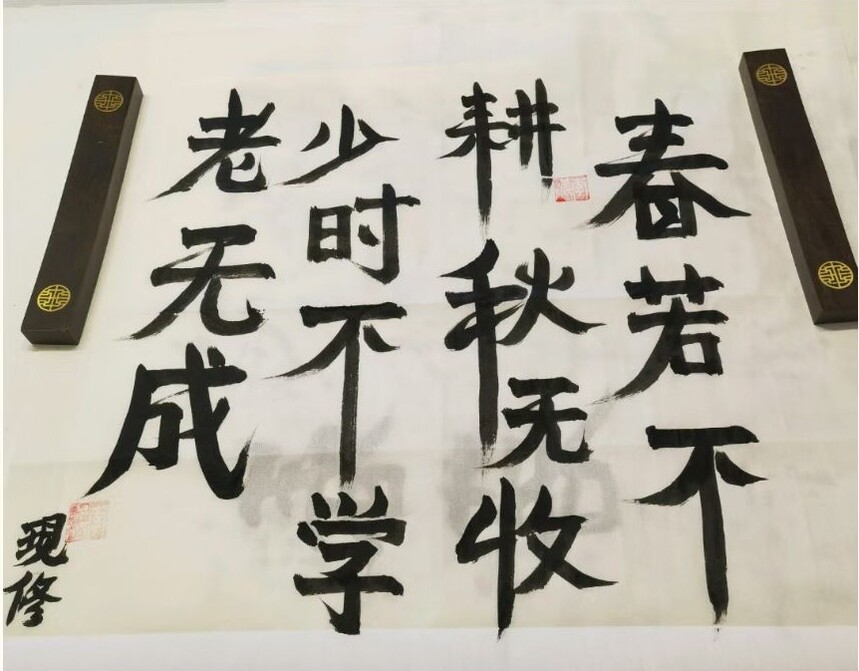 春若不
耕秋无收
少时不学
老无成
现修